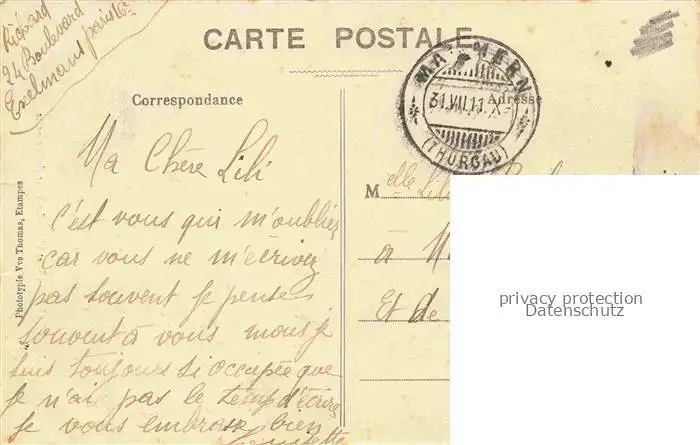 Richard
24 Boulevard
Exelmans paris 16e
CARTE POSTALE
MAMMERN
31.VII.11.X-
(THURGAU)
Correspondance
Adresse
Ma Chère Lili
c'est vous qui m'oubliez
car vous ne m'écrivez
pas souvent je pense
souvent à vous mais je
suis toujours si occupée que
je n'ai pas le temp d'écrire
je vous embrasse bien
Mlle Lili
a
Et de
Phototypie Vve Thomas, Etampes
privacy protection
Datenschutz